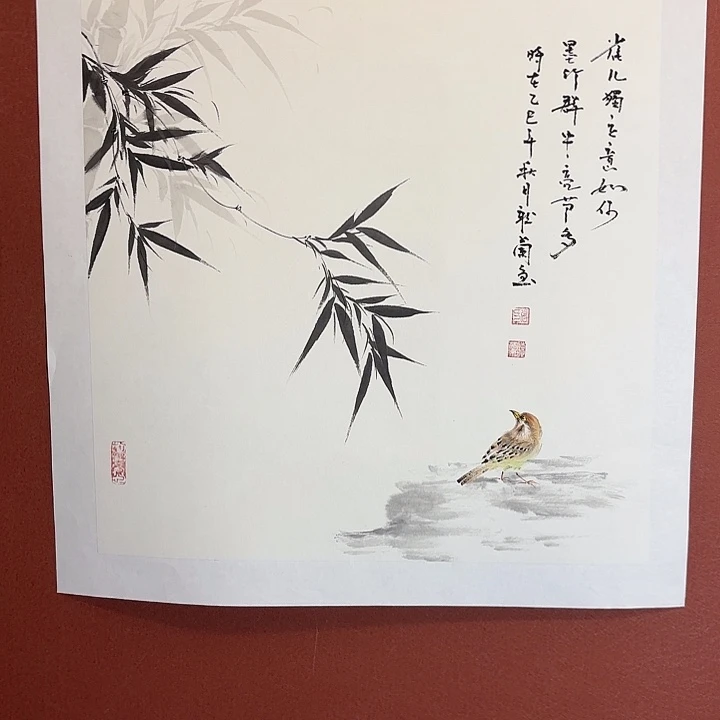 雀儿獨立意如何
墨竹群中亮节多
時在乙巳年秋月 蘭画